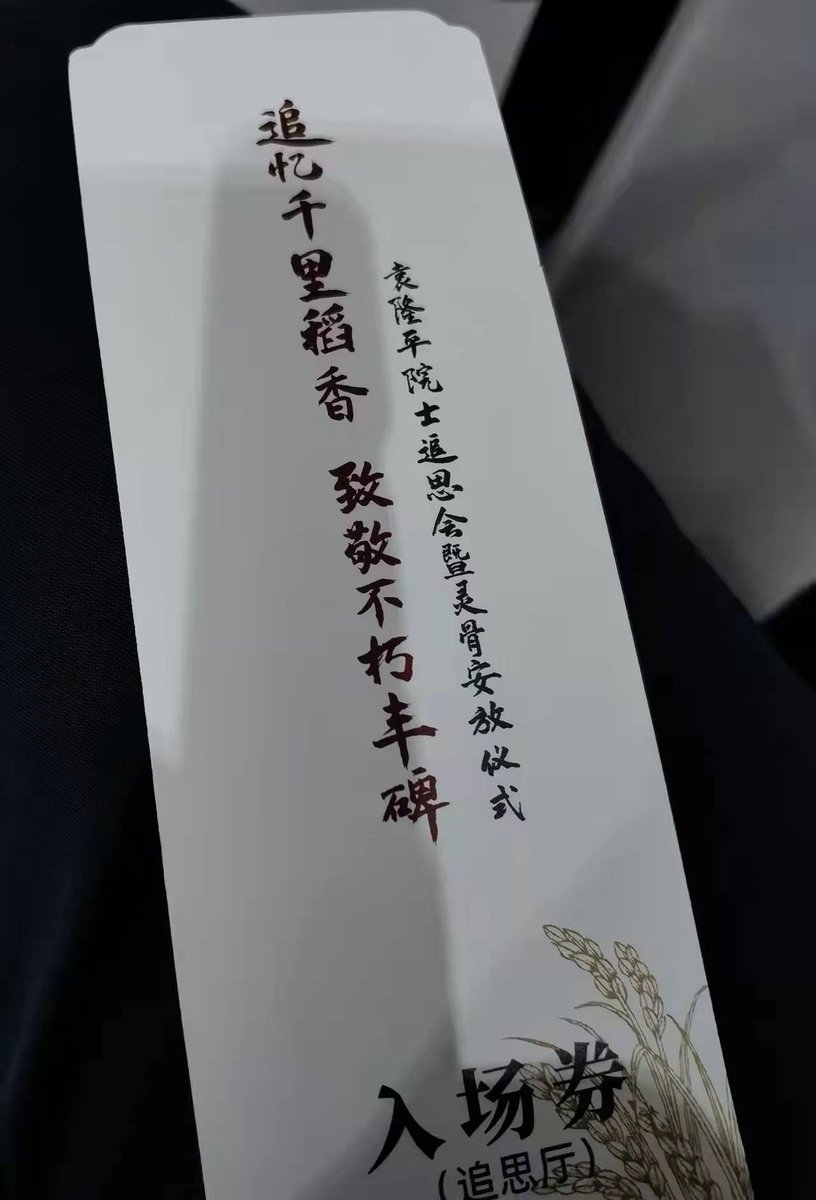 追忆千里稻香 致敬不朽丰碑
袁隆平院士追思会暨灵骨安放仪式
入场券
(追思厅)